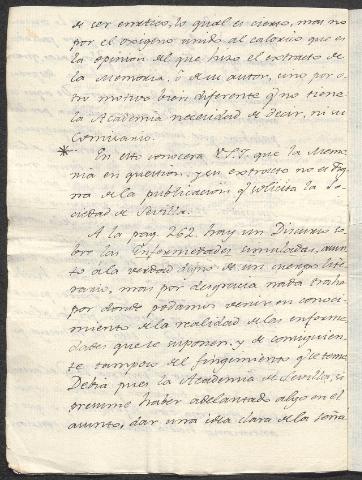 di ser emetico, lo qual es cierto, mas no
por el oxigeno unido al calorico que es
la opinion del que hizo el extracto de
la Memoria, ó de su autor, sino por o
tro motivo bien diferente q.e no tiene
la Academia necesidad de decir, ni su
Comisario.
* En esto conocera V.S.I. que la Memo
ria en question, y su extracto no es dig
na de la publicacion q.e solicita la So
ciedad de Sevilla.
A la pag. 262. hay un Discurso so
bre las Enfermedades simuladas, asun
to á la verdad digno de un cuerpo lite
rario, mas por desgracia nada trahe
por donde podamos venir en conoci
miento de la realidad de las enferme
dades que se suponen, y de consiguien
te tampoco del fingimiento q.e se teme.
Debia pues la Academia de Sevilla, si
presume haber adelantado algo en el
asunto, dar una idea clara de la seña